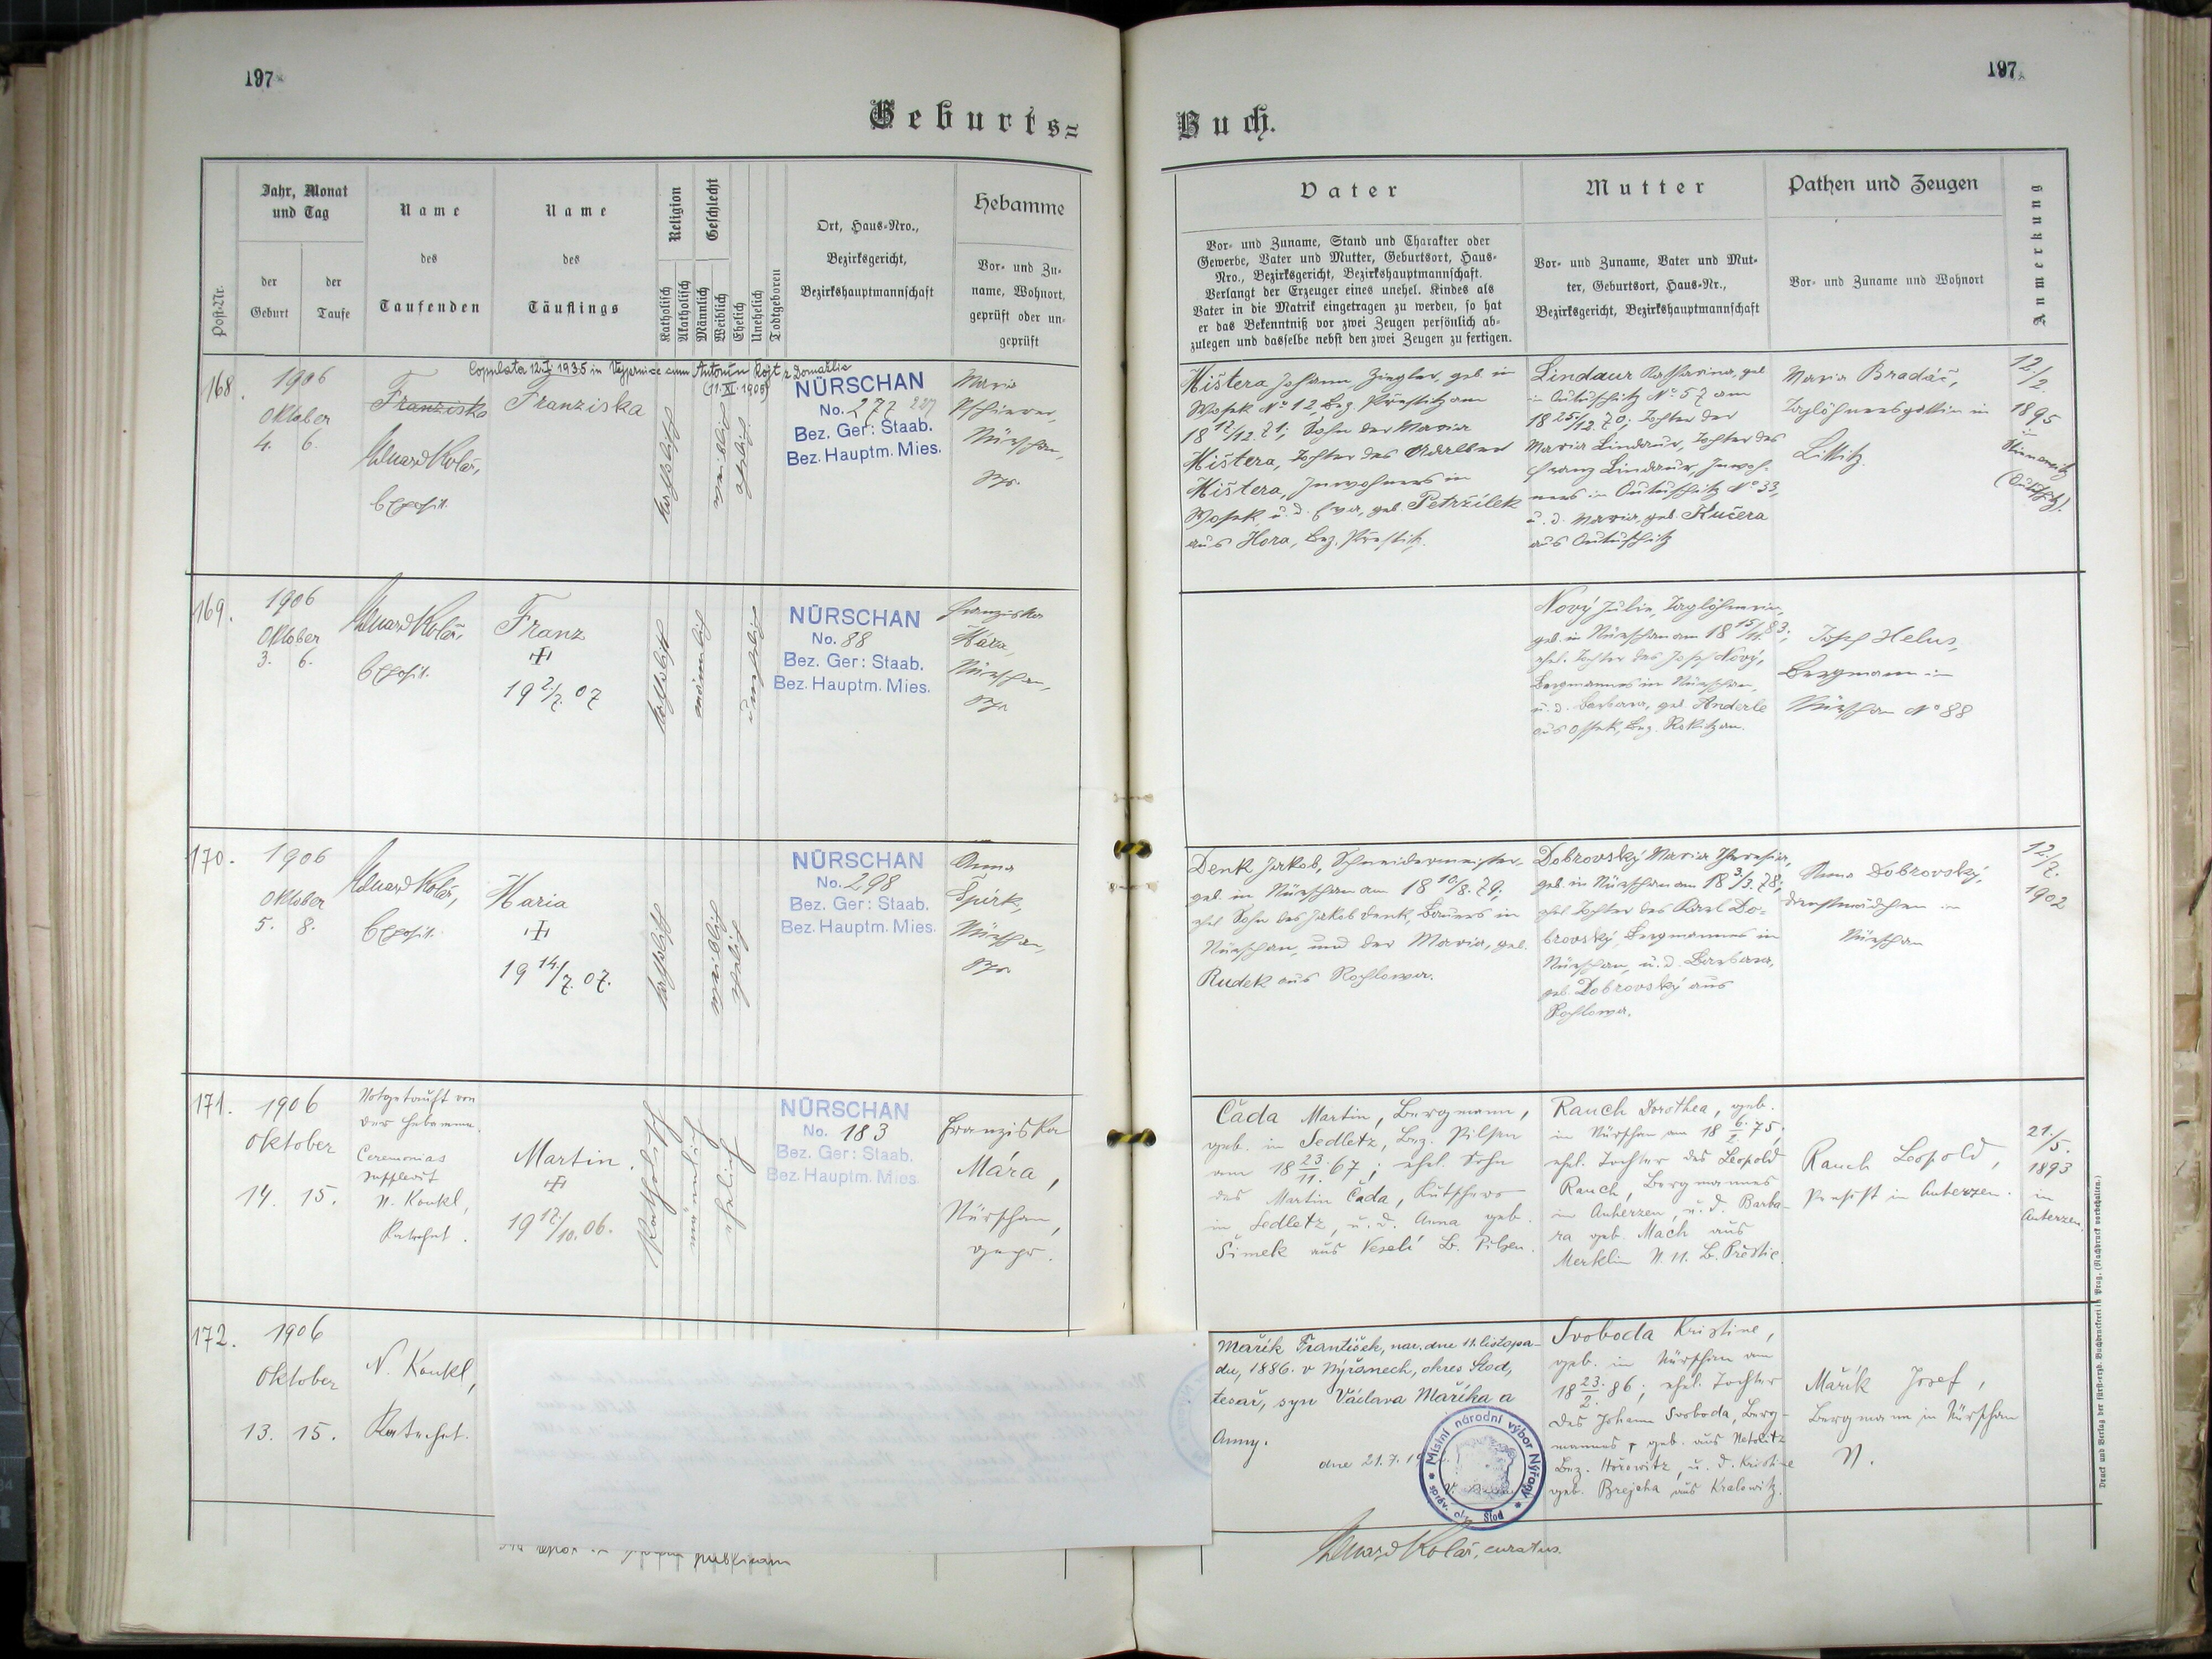 197
197
Geburts=
Buch.
Post-Nr.
Jahr, Monat
und Tag
der
Geburt
der
Taufe
Name
des
Taufenden
Name
des
Täuflings
Religion
Katholisch
Akatholisch
Geschlecht
Männlich
Weiblich
Ehelich
Unehelich
Todtgeboren
Ort, Haus-Nro.,
Bezirksgericht,
Bezirkshauptmannschaft
Hebamme
Vor- und Zu-
name, Wohnort,
geprüft oder un-
geprüft
Vater
Vor- und Zuname, Stand und Charakter oder
Gewerbe, Vater und Mutter, Geburtsort, Haus-
Nro., Bezirksgericht, Bezirkshauptmannschaft.
Verlangt der Erzeuger eines unehel. Kindes als
Vater in die Matrik eingetragen zu werden, so hat
er das Bekenntniß vor zwei Zeugen persönlich ab-
zulegen und dasselbe nebst den zwei Zeugen zu fertigen.
Mutter
Vor- und Zuname, Vater und Mut-
ter, Geburtsort, Haus-Nr.,
Bezirksgericht, Bezirkshauptmannschaft
Pathen und Zeugen
Vor- und Zuname und Wohnort
Anmerkung
Copulata 12.I 1935 in Vejprnice cum Antonín Rojt z Domažlic
(11.XI.1905)
168.
1906
Oktober
4. 6.
Franziska
Eduard Kolář,
Exposit.
Franziska
katholisch
weiblich
ehelich
NÜRSCHAN
No. 277 227
Bez. Ger: Staab.
Bez. Hauptm. Mies.
Maria
Nürschan,
gpr.
Mištera Johann, Ziegler, geb. in
Wosek N° 12, Bez. Přestitz am
18 12/12. 71; Sohn der Maria
Mištera, Tochter des Adalbert
Mištera, Inwohners in
Wosek, u. d. Eva, geb. Petržilek
aus Hora, Bez. Přestitz.
Lindaur Katharina, geb.
in Autuschitz N° 57 am
18 25/12. 70; Tochter der
Maria Lindaur, Tochter des
Franz Lindaur, Inwoh-
ners in Autuschitz N° 33,
u. d. Maria, geb. Kučera
aus Autuschitz
Maria Bradáč,
Taglöhnersgattin in
Littitz.
12./2.
1895
in
169.
1906
Oktober
3. 6.
Eduard Kolář,
Exposit.
Franz
+
19 2/7. 07
katholisch
männlich
unehelich
NÜRSCHAN
No. 88
Bez. Ger: Staab.
Bez. Hauptm. Mies.
Franziska
Mára,
Nürschan,
gpr.
Nový Julie, Taglöhnerin,
geb. in Nürschan am 18 15/11. 83;
ehel. Tochter des Josef Nový,
Bergmannes in Nürschan,
u. d. Barbara, geb. Anderle
aus Ossek, Bez. Rokitzan.
Josef Helus,
Bergmann in
Nürschan N° 88
170.
1906
Oktober
5. 8.
Eduard Kolář,
Exposit.
Maria
+
19 14/7. 07.
katholisch
weiblich
ehelich
NÜRSCHAN
No. 298
Bez. Ger: Staab.
Bez. Hauptm. Mies.
Anna
Špirk,
Nürschan,
gpr.
Denk Jakob, Schneidermeister,
geb. in Nürschan am 18 10/8. 79,
ehel. Sohn des Jakob Denk, Bauers in
Nürschan, und der Maria, geb.
Rudek aus Rochlowa.
Dobrovský Maria Theresia,
geb. in Nürschan am 18 3/3. 78;
ehel. Tochter des Karl Do-
brovský, Bergmannes in
Nürschan, u. d. Barbara,
geb. Dobrovský aus
Rochlowa.
Anna Dobrovský,
Dienstmädchen in
Nürschan
12./7.
1902
171.
1906
Oktober
14. 15.
Notgetauft von
der Hebamme.
Ceremonias
supplevit
N. Koukl,
Katechet.
Martin.
+
19 17/10. 06.
Katholisch
Männlich
Ehelich
NÜRSCHAN
No. 183
Bez. Ger: Staab.
Bez. Hauptm. Mies.
Franziska
Mára,
Nürschan,
gepr.
Čada Martin, Bergmann,
geb. in Sedletz, Bez. Pilsen
am 18 23/11. 67; ehel. Sohn
des Martin Čada, Kutschers
in Sedletz, u. d. Anna geb.
Šimek aus Veselí B. Pilsen.
Rauch Dorothea, geb.
in Nürschan am 18 6./2. 75;
ehel. Tochter des Leopold
Rauch, Bergmannes
in Auherzen, u. d. Barba-
ra geb. Mach aus
Merklin N. 11. B. Prestic.
Rauch Leopold,
in Auherzen.
21./5.
1893
in
Auherzen.
172.
1906
Oktober
13. 15.
N. Koukl,
Katechet.
Mařík František, nar. dne 11. listopa-
du, 1886. v Nýřanech, okres Stod,
tesař, syn Václava Maříka a
Anny.
dne 21. 7. 19
Místní národní výbor Nýřany
správ. okr. Stod
Svoboda Kristine,
geb. in Nürschan am
18 23./2. 86; ehel. Tochter
des Johann Svoboda, Berg-
mannes, geb. aus Netolitz
Bez. Hořowitz, u. d. Kristine
geb. Brejcha aus Kralowitz.
Mařík Josef,
Bergmann in Nürschan
N.
publicam
Eduard Kolář, curatus.
Druck und Verlag der fürst-erzb. Buchdruckerei in Prag. (Nachdruck vorbehalten.)